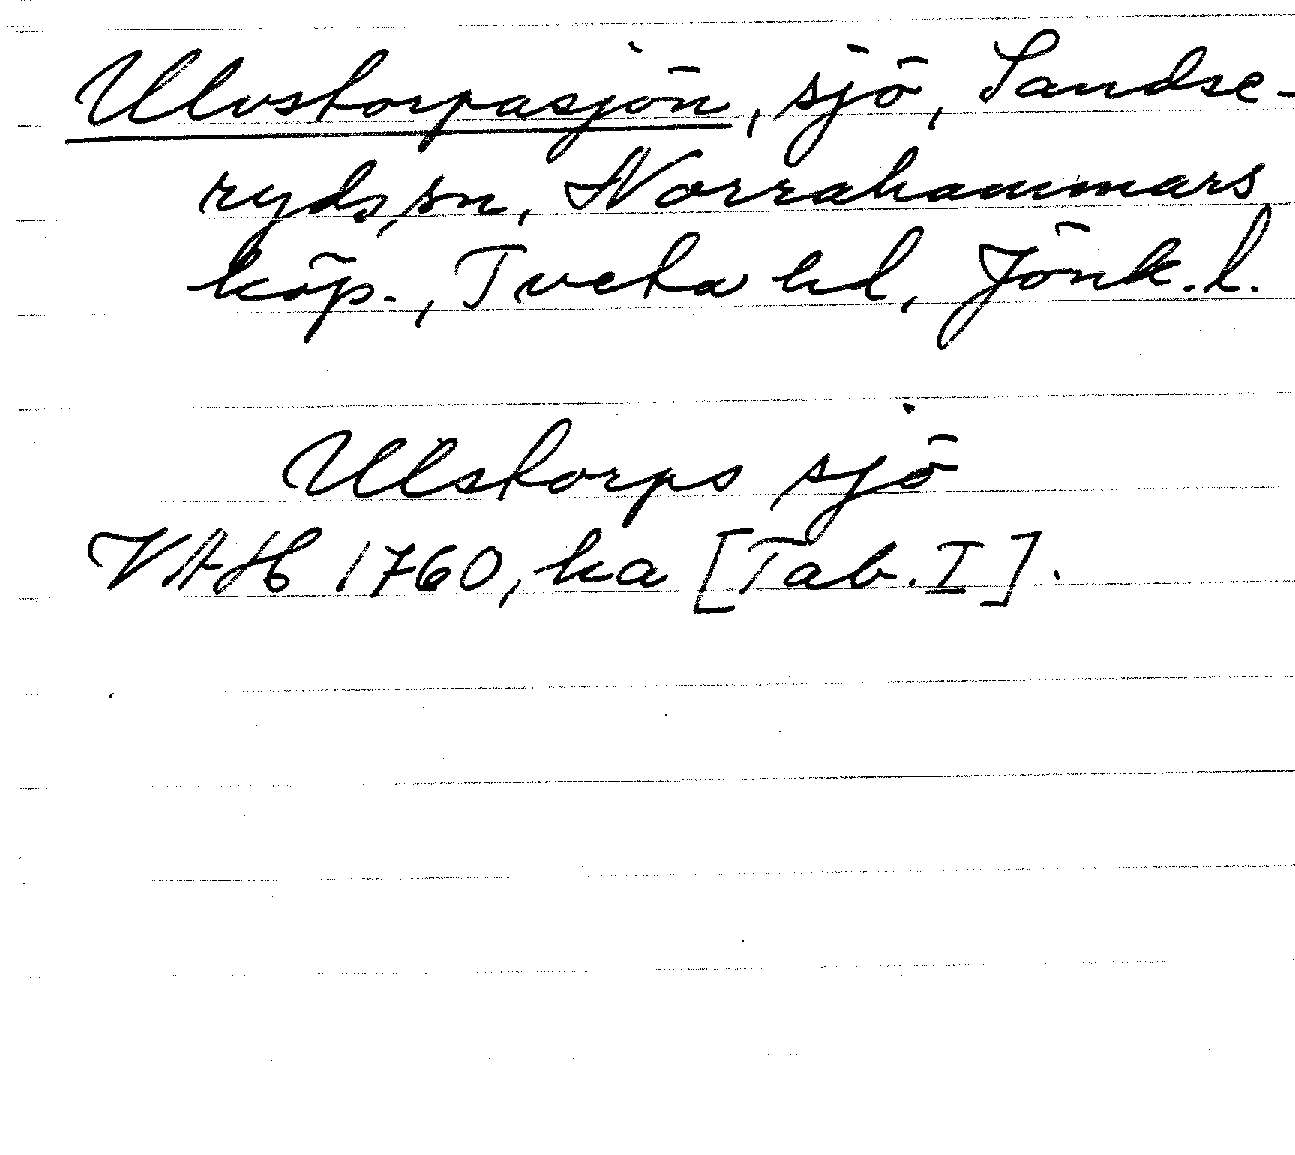 Ulvstorpasjön, sjö, Sandse-
ryds sn, Norrahammars
köp., Tveta hd, Jönk.l.
Ulstorps sjö
VAH 1760, ka [Tab. I].